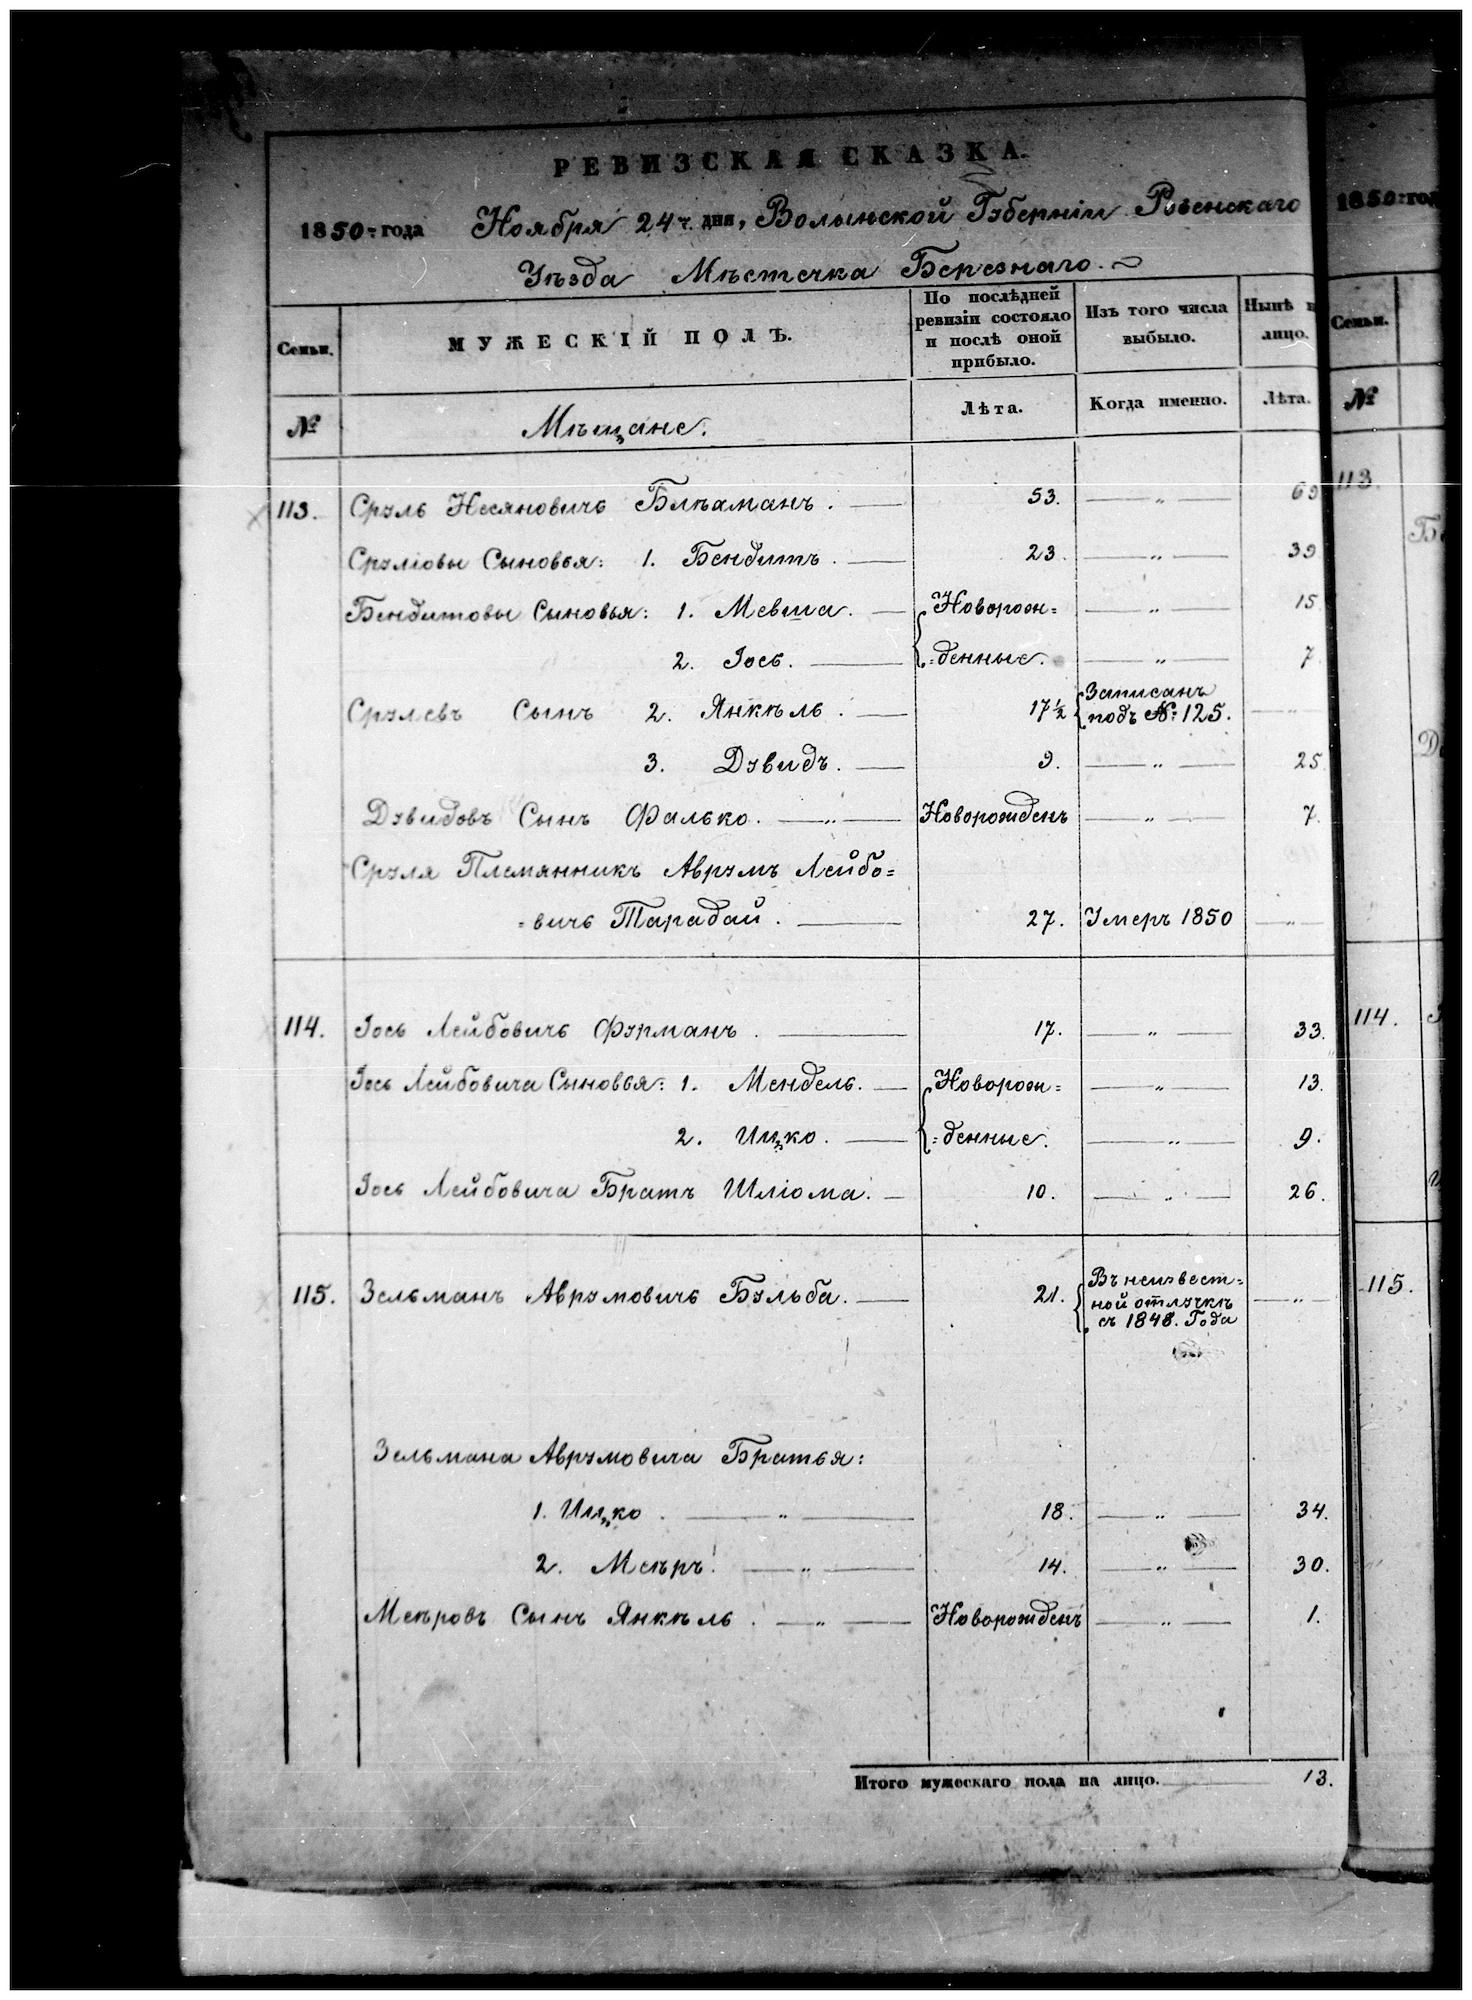 РЕВИЗСКАЯ СКАЗКА.
1850 года Ноября 24 дня, Волынской Губерніи Ровенскаго
Уѣзда Мѣстечка Березнаго.
Семьи. МУЖЕСКІЙ ПОЛЪ. По послѣдней ревизіи состояло и послѣ оной прибыло. Изъ того числа выбыло. Нынѣ н лицо.
№ Мѣщане. Лѣта. Когда именно. Лѣта.
113. Сруль Несяновичь Блѣаманъ. 53. — „ — 69
Cруліовы Сыновья: 1. Бендитъ. 23. — „ — 39
Бендитовы Сыновья: 1. Мевша. Новорож= — „ — 15
2. Іось. =денные. — „ — 7
Срулевъ Сынъ 2. Янкѣль. 17½ Записанъ подъ №: 125. — „ —
3. Дувидъ. 9. — „ — 25.
Дувидовъ Сынъ Фалько. — „ — Новорожденъ — „ — 7.
Сруля Племянникъ Аврумъ Лейбо=
=вичь Тарадай. 27. Умеръ 1850 — „ —
114. Іось Лейбовичь Фурманъ. 17. — „ — 33.
Іось Лейбовича Сыновья: 1. Мендель. Новорож= — „ — 13.
2. Ицко. =денные. — „ — 9.
Іось Лейбовича Братъ Шліома. 10. — „ — 26.
115. Зельманъ Аврумовичь Бульба. 21. Въ неизвест=
ной отлучкѣ
съ 1848. Года — „ —
Зельмана Аврумовича Братья:
1. Ицко. — „ — 18. — „ — 34.
2. Меѣръ. — „ — 14. — „ — 30.
Меѣровъ Сынъ Янкѣль. — „ — Новорожденъ — „ — 1.
Итого мужескаго пола на лицо. 13.
1850 год
Семьи.
№
113.
114.
115.